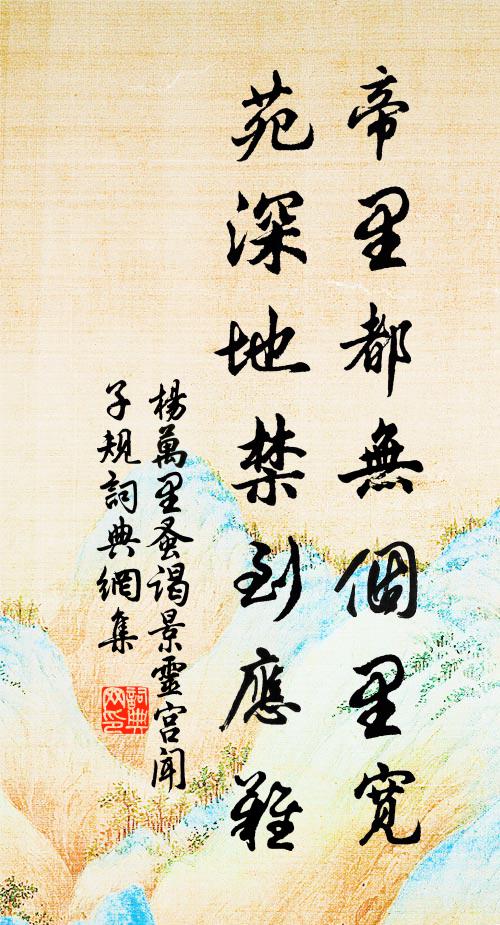 帝里都無個里寬
苑深地禁到應難
楊萬里蚤謁景靈宮聞
子規詞典網集
詞典
网印